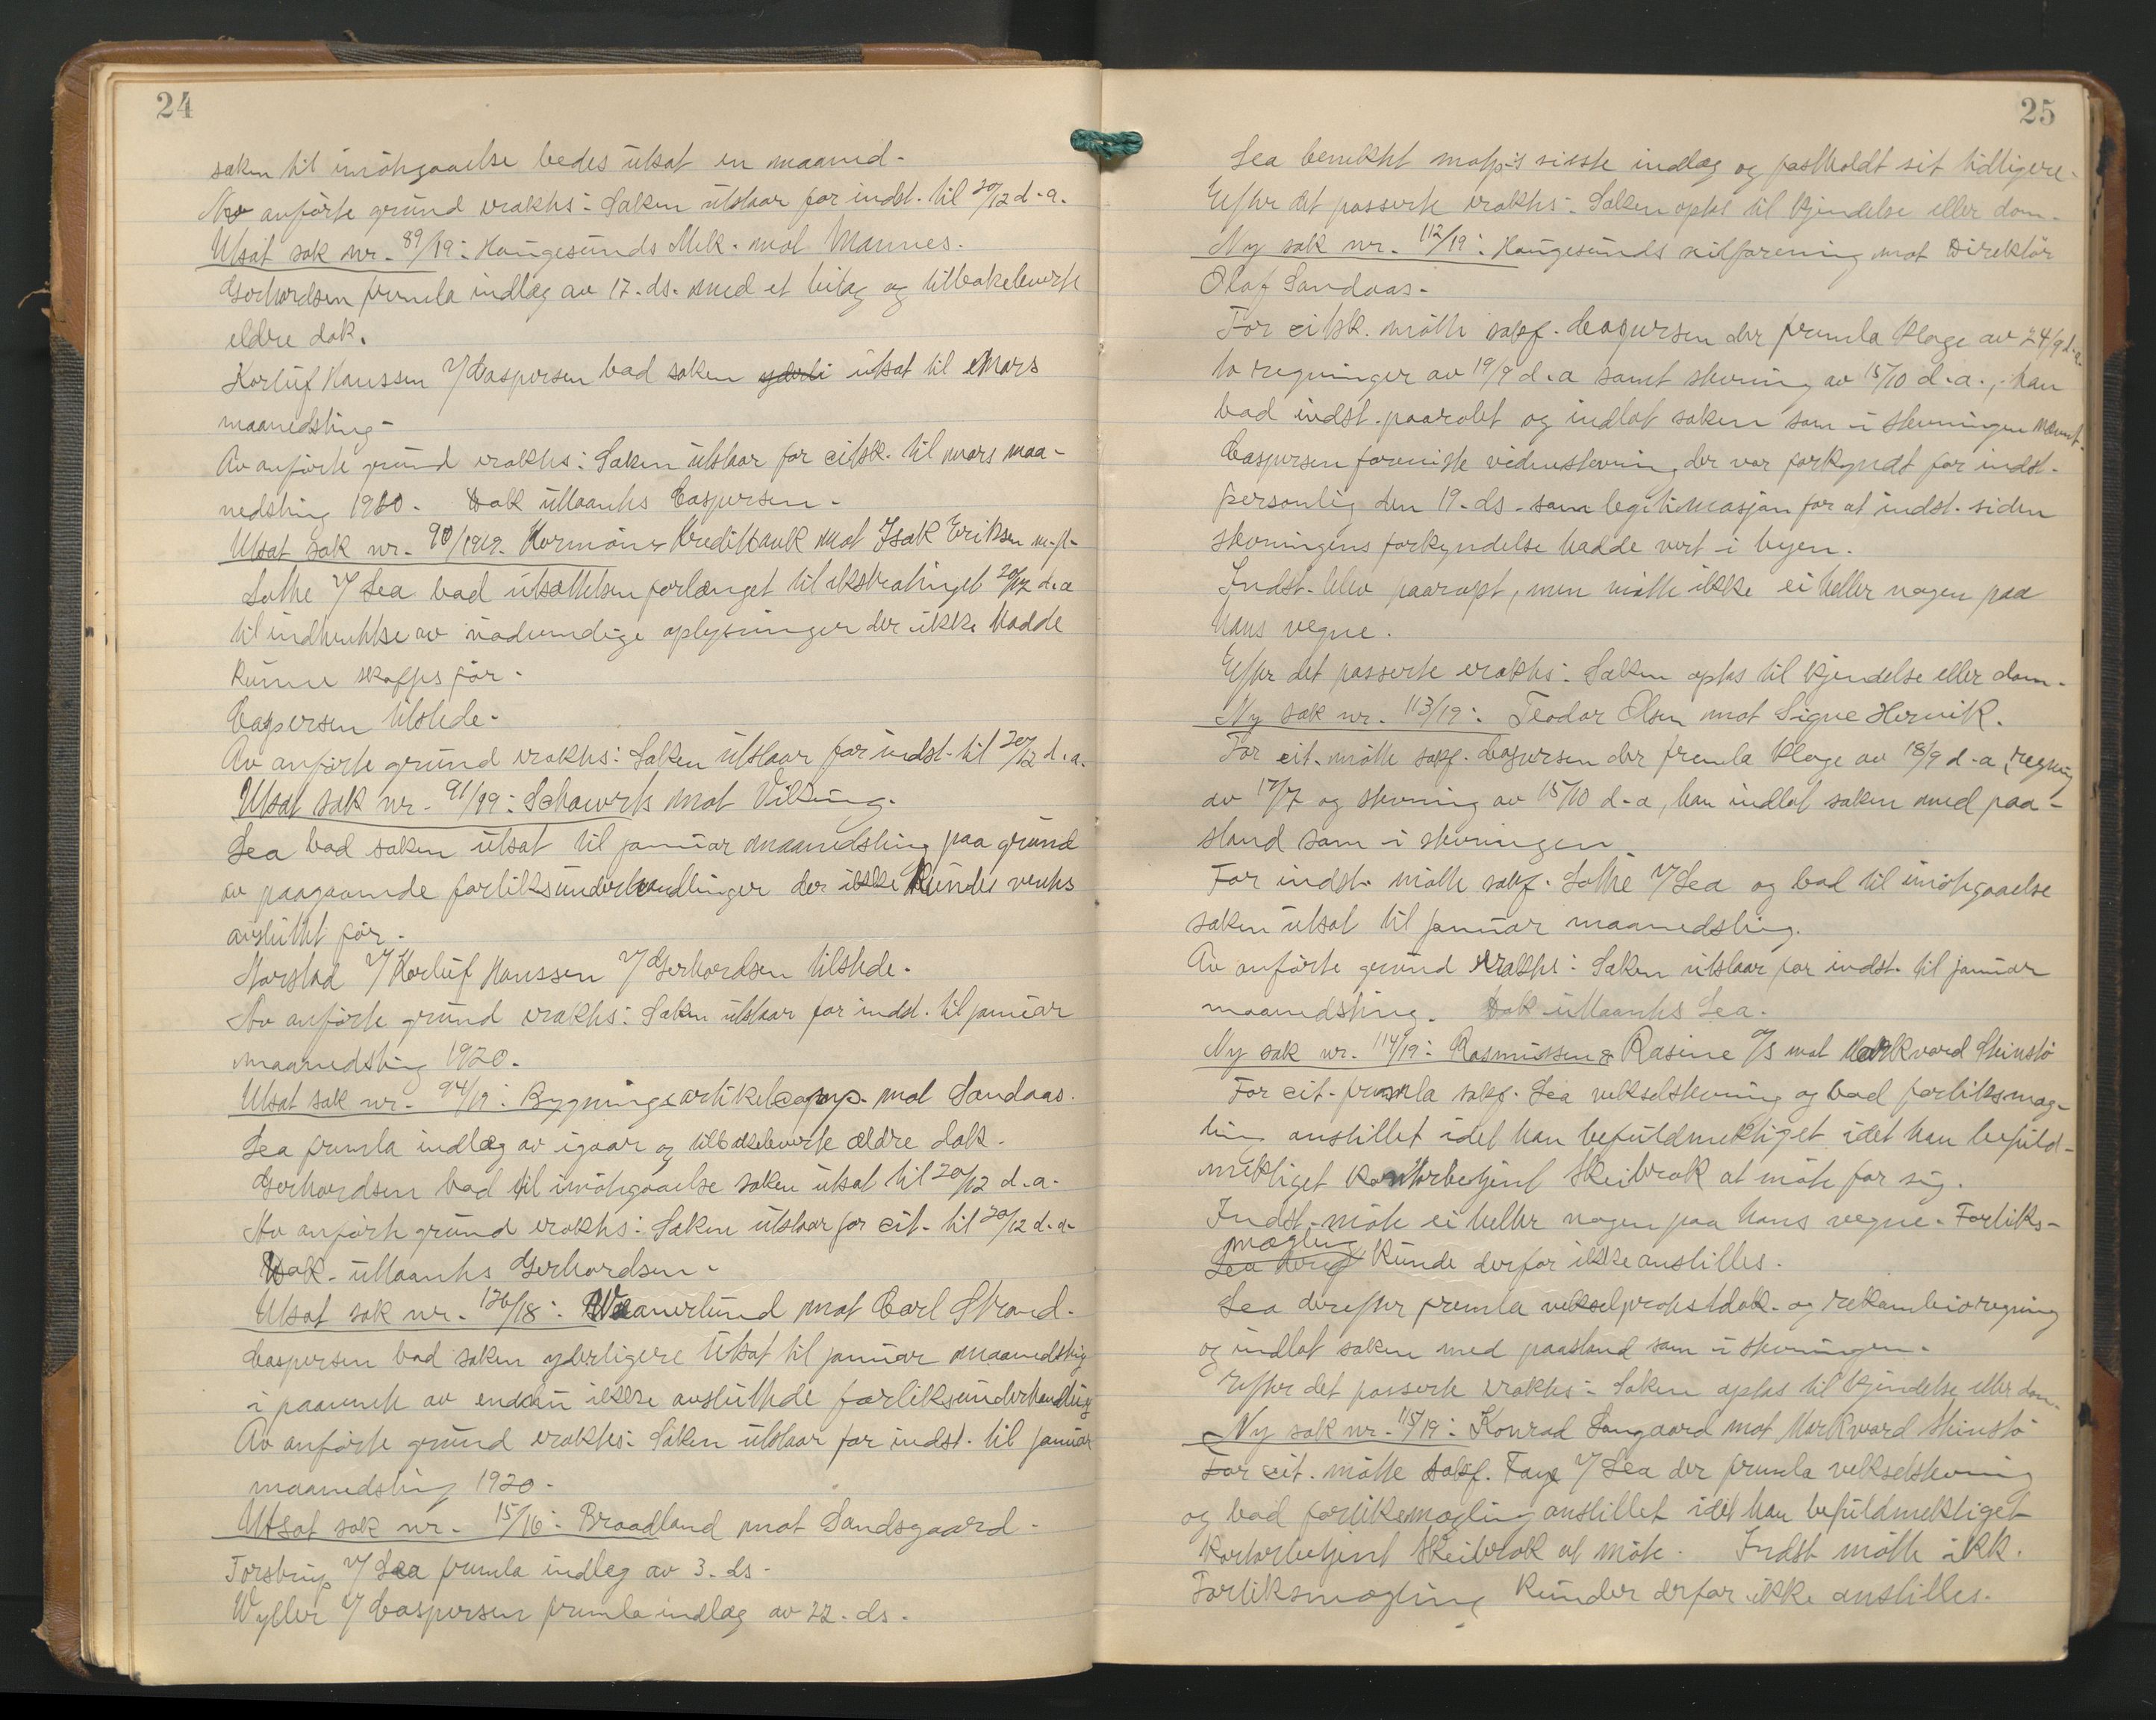 24
saken til imøtegaaelse bedes utsat en maaned.
Av anførte grund eraktes: Saken utstaar for indst. til 20/12 d.a.
Utsat sak nr. 89/19: Haugesunds Mek. mot Mannes.
Gerhardsen fremla indlæg av 17. ds. med et bilag og tilbakeleverte
eldre dok.
Korluf Hanssen v/ Caspersen bad saken utsat til Mars
maanedsting.
Av anførte grund eraktes: Saken utstaar for citsk. til mars maa-
nedsting 1920. Dok utlaantes Caspersen.
Utsat sak nr. 90/1919. Karmøns Kreditbank mot Isak Eriksen m.fl.
Lothe v/ Lea bad utsættelsen forlænget til ekstratinget 20/12 d.a
til indhentelse av nødvendige oplysninger der ikke hadde
kunne skaffes før.
Caspersen tilstede.
Av anførte grund eraktes: Saken utstaar for indst. til 20/12 d.a.
Utsat sak nr. 91/19: Schawerts mot Viking.
Lea bad saken utsat til januar maanedsting paa grund
av paagaaende forliksunderhandlinger der ikke kundes ventes
avsluttet før.
Norstad v/ Korluf Hanssen v/ Gerhardsen tilstede.
Av anførte grund eraktes: Saken utstaar for indst. til januar
maanedsting 1920.
Utsat sak nr. 94/19: Bygningsartikelcomp. mot Sandaas.
Lea fremla indlæg av igaar og tilbakeleverte ældre dok.
Gerhardsen bad til imøtegaaelse saken utsat til 20/12 d.a.
Av anførte grund eraktes: Saken utstaar for cit. til 20/12 d.a.
Dok. utlaantes Gerhardsen.
Utsat sak nr. 126/18: Wannerlund mot Carl Strand.
Caspersen bad saken yderligere utsat til januar maanedsting
i paavente av endnu ikke avsluttede forliksunderhandling
Av anførte grund eraktes: Saken utstaar for indst. til januar
maanedsting 1920.
Utsat sak nr. 15/16: Braadland mot Sandsgaard.
Torstrup v/ Lea fremla indlæg av 3. ds.
Wyller v/ Caspersen fremla indlæg av 22. ds.
25
Lea benektet motp's sisste indlæg og fastholdt sit tidligere.
Efter det passerte eraktes: Saken optas til kjendelse eller dom.
Ny sak nr. 112/19: Haugesunds seilforening mot Direktør
Olaf Sandaas.
For citsk. møtte sakf. Caspersen der fremla klage av 24/9 d.a.
to regninger av 19/9 d.a samt stevning av 15/10 d.a., han
bad indst. paaropt og indlot saken som i stevningen nævnt.
Caspersen foreviste vidnestevning der var forkyndt for indst.
personlig den 19. ds. som legitimasjon for at indst. siden
stevningens forkyndelse hadde vert i byen.
Indst. blev paaropt, men møtte ikke ei heller nogen paa
hans vegne.
Efter det passerte eraktes: Saken optas til kjendelse eller dom.
Ny sak nr. 113/19: Teodor Olsen mot Signe Hervik.
For cit. møtte sakf. Caspersen der fremla klage av 18/9 d.a, regning
av 17/7 og stevning av 15/10 d.a, han indlot saken med paa-
stand som i stevningen.
For indst. møtte sakf. Lothe v/ Lea og bad til imøtegaaelse
saken utsat til januar maanedsting.
Av anførte grund eraktes: Saken utstaar for indst. til januar
maanedsting. Dok utlaantes Lea.
Ny sak nr. 114/19: Rasmussen & Rasine a/s mot Markvard Steinstø
For cit. fremla sakf. Lea vekselstevning og bad forliksmæg-
ling anstillet idet han befuldmektiget idet han befuld-
mektiget kontorbetjent Skeibrok at møte for sig.
Indst. møte ei heller nogen paa hans vegne. Forliks-
mægling kunde derfor ikke anstilles.
Lea derefter fremla vekselprotestdok. og rekambioregning
og indlot saken med paastand som i stevningen.
Efter det passerte eraktes: Saken optas til kjendelse eller dom.
Ny sak nr. 115/19: Konrad Langaard mot Markvard Steinstø
For cit. møtte sakf. Faye v/ Lea der fremla vekselstevning
og bad forliksmægling anstillet idet han befuldmektiget
kontorbetjent Skeibrok at møte. Indst møtte ikk.
Forliksmægling kunder derfor ikke anstilles.